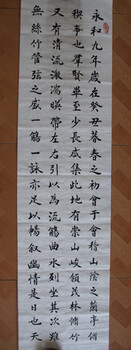 永和九年歲在癸丑暮春之初會于會稽山陰之蘭亭脩
稧事也羣賢畢至少長咸集此地有崇山峻領茂林脩竹
又有清流激湍暎帶左右引以為流觴曲水列坐其次雖
無絲竹管弦之盛一觴一詠亦足以暢敘幽情是日也天